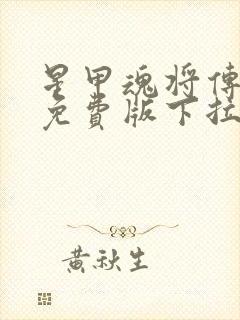 星甲魂将傳
免費版下拉
黃秋生